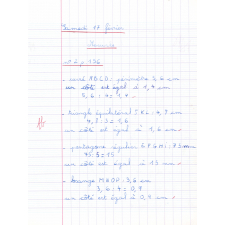 Vendredi 17 février
Mesures
n° 2 p 136
- carré ABCD : périmètre 5,6 cm
un côté est égal à 1,4 cm
5,6 : 4 = 1,4
- triangle équilatéral : 4,8 cm
4,8 : 3 = 1,6
un côté est égal à 1,6 cm
- pentagone régulier EFGHI : 75 mm
75 : 5 = 15
un côté est égal à 15 mm
- losange MNOP : 3,6 cm
3,6 : 4 = 0,9
un côté est égal à 0,9 cm